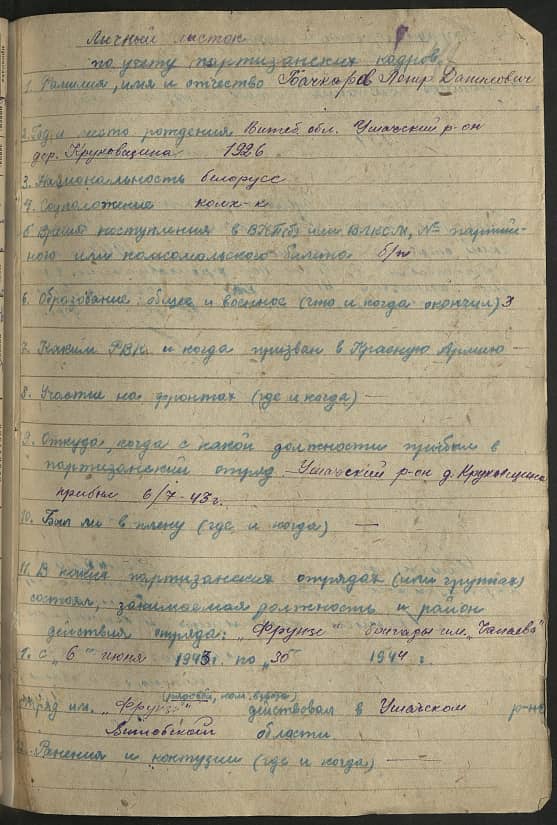 Личный листок
по учету партизанских кадров.
1. Фамилия, имя и отчество Данилович
2. Год и место рождения Витеб обл. Ушачский р-он
дер. Круковщина 1926
3. Национальность белорусс
4. Соцположение колх-к
5. Время поступления в ВКП(б) или ВЛКСМ, № партий-
ного или комсомольского билета б/п
6. Образование: общее и военное (что и когда окончил) 3
7. Каким РВК и когда призван в Красную Армию —
8. Участие на фронтах (где и когда) —
9. Откуда, когда с какой должности прибыл в
партизанский отряд – Ушачский р-он д. Круковщина
прибыл 6/7-43 г.
10. Был ли в плену (где и когда) —
11. В каких партизанских отрядах (или группах)
состоял, занимаемая должность и район
действия отряда: „Фрунзе" бригады им. „Чапаева"
1. с „6" июня 1943 г. по „30" 1944 г.
(рядовой, ком. взвода)
отряд им. „Фрунзе" действовал в Ушачском р-не
Витебской области
12. Ранения и контузии (где и когда) —